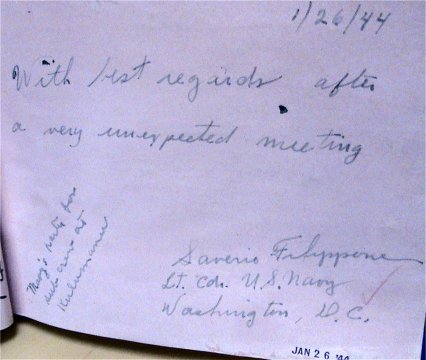 1/26/44
With best regards after
a very unexpected meeting
Saverio Filippone
Lt. Cdr. U.S. Navy
Washington, D.C.
sub crew at
JAN 26 '44